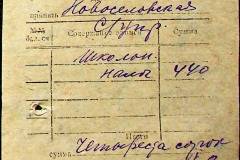 принять Новоселовская
С/Упр.
№№ Содержание записи Сумма
Школьн.
налог 440
Итого
сумма Четыреста сорок